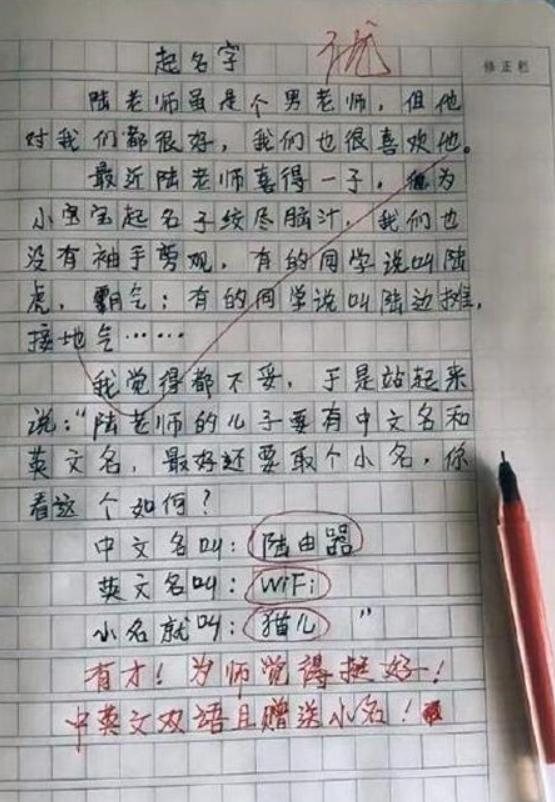 优
起名字
修正栏
陆老师虽是个男老师，但他
对我们都很好，我们也很喜欢他。
最近陆老师喜得一子，他为
小宝宝起名子绞尽脑汁，我们也
没有袖手旁观，有的同学说叫陆
虎，霸气；有的同学说叫陆边摊，
接地气……
我觉得都不妥，于是站起来
说：“陆老师的儿子要有中文名和
英文名，最好还要取个小名，你
看这个如何？
中文名叫：陆由器
英文名叫：WiFi
小名就叫：猫儿”
有才！为师觉得挺好！
中英文双语且赠送小名！